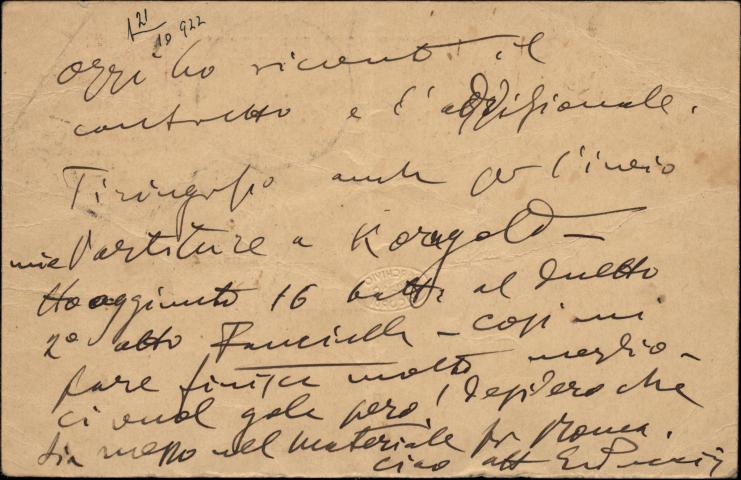 21
10 922
Oggi ho ricevuto il
contratto e l'addizionale.
Ti ringrazio anche per l'invio
mie Partiture a Korngold —
Ho aggiunto 16 battute al duetto
2º atto Fanciulla — così mi
pare finisca molto meglio —
ci vuol gola però! Desidero che
sia messo nel materiale per Roma.
ciao aff